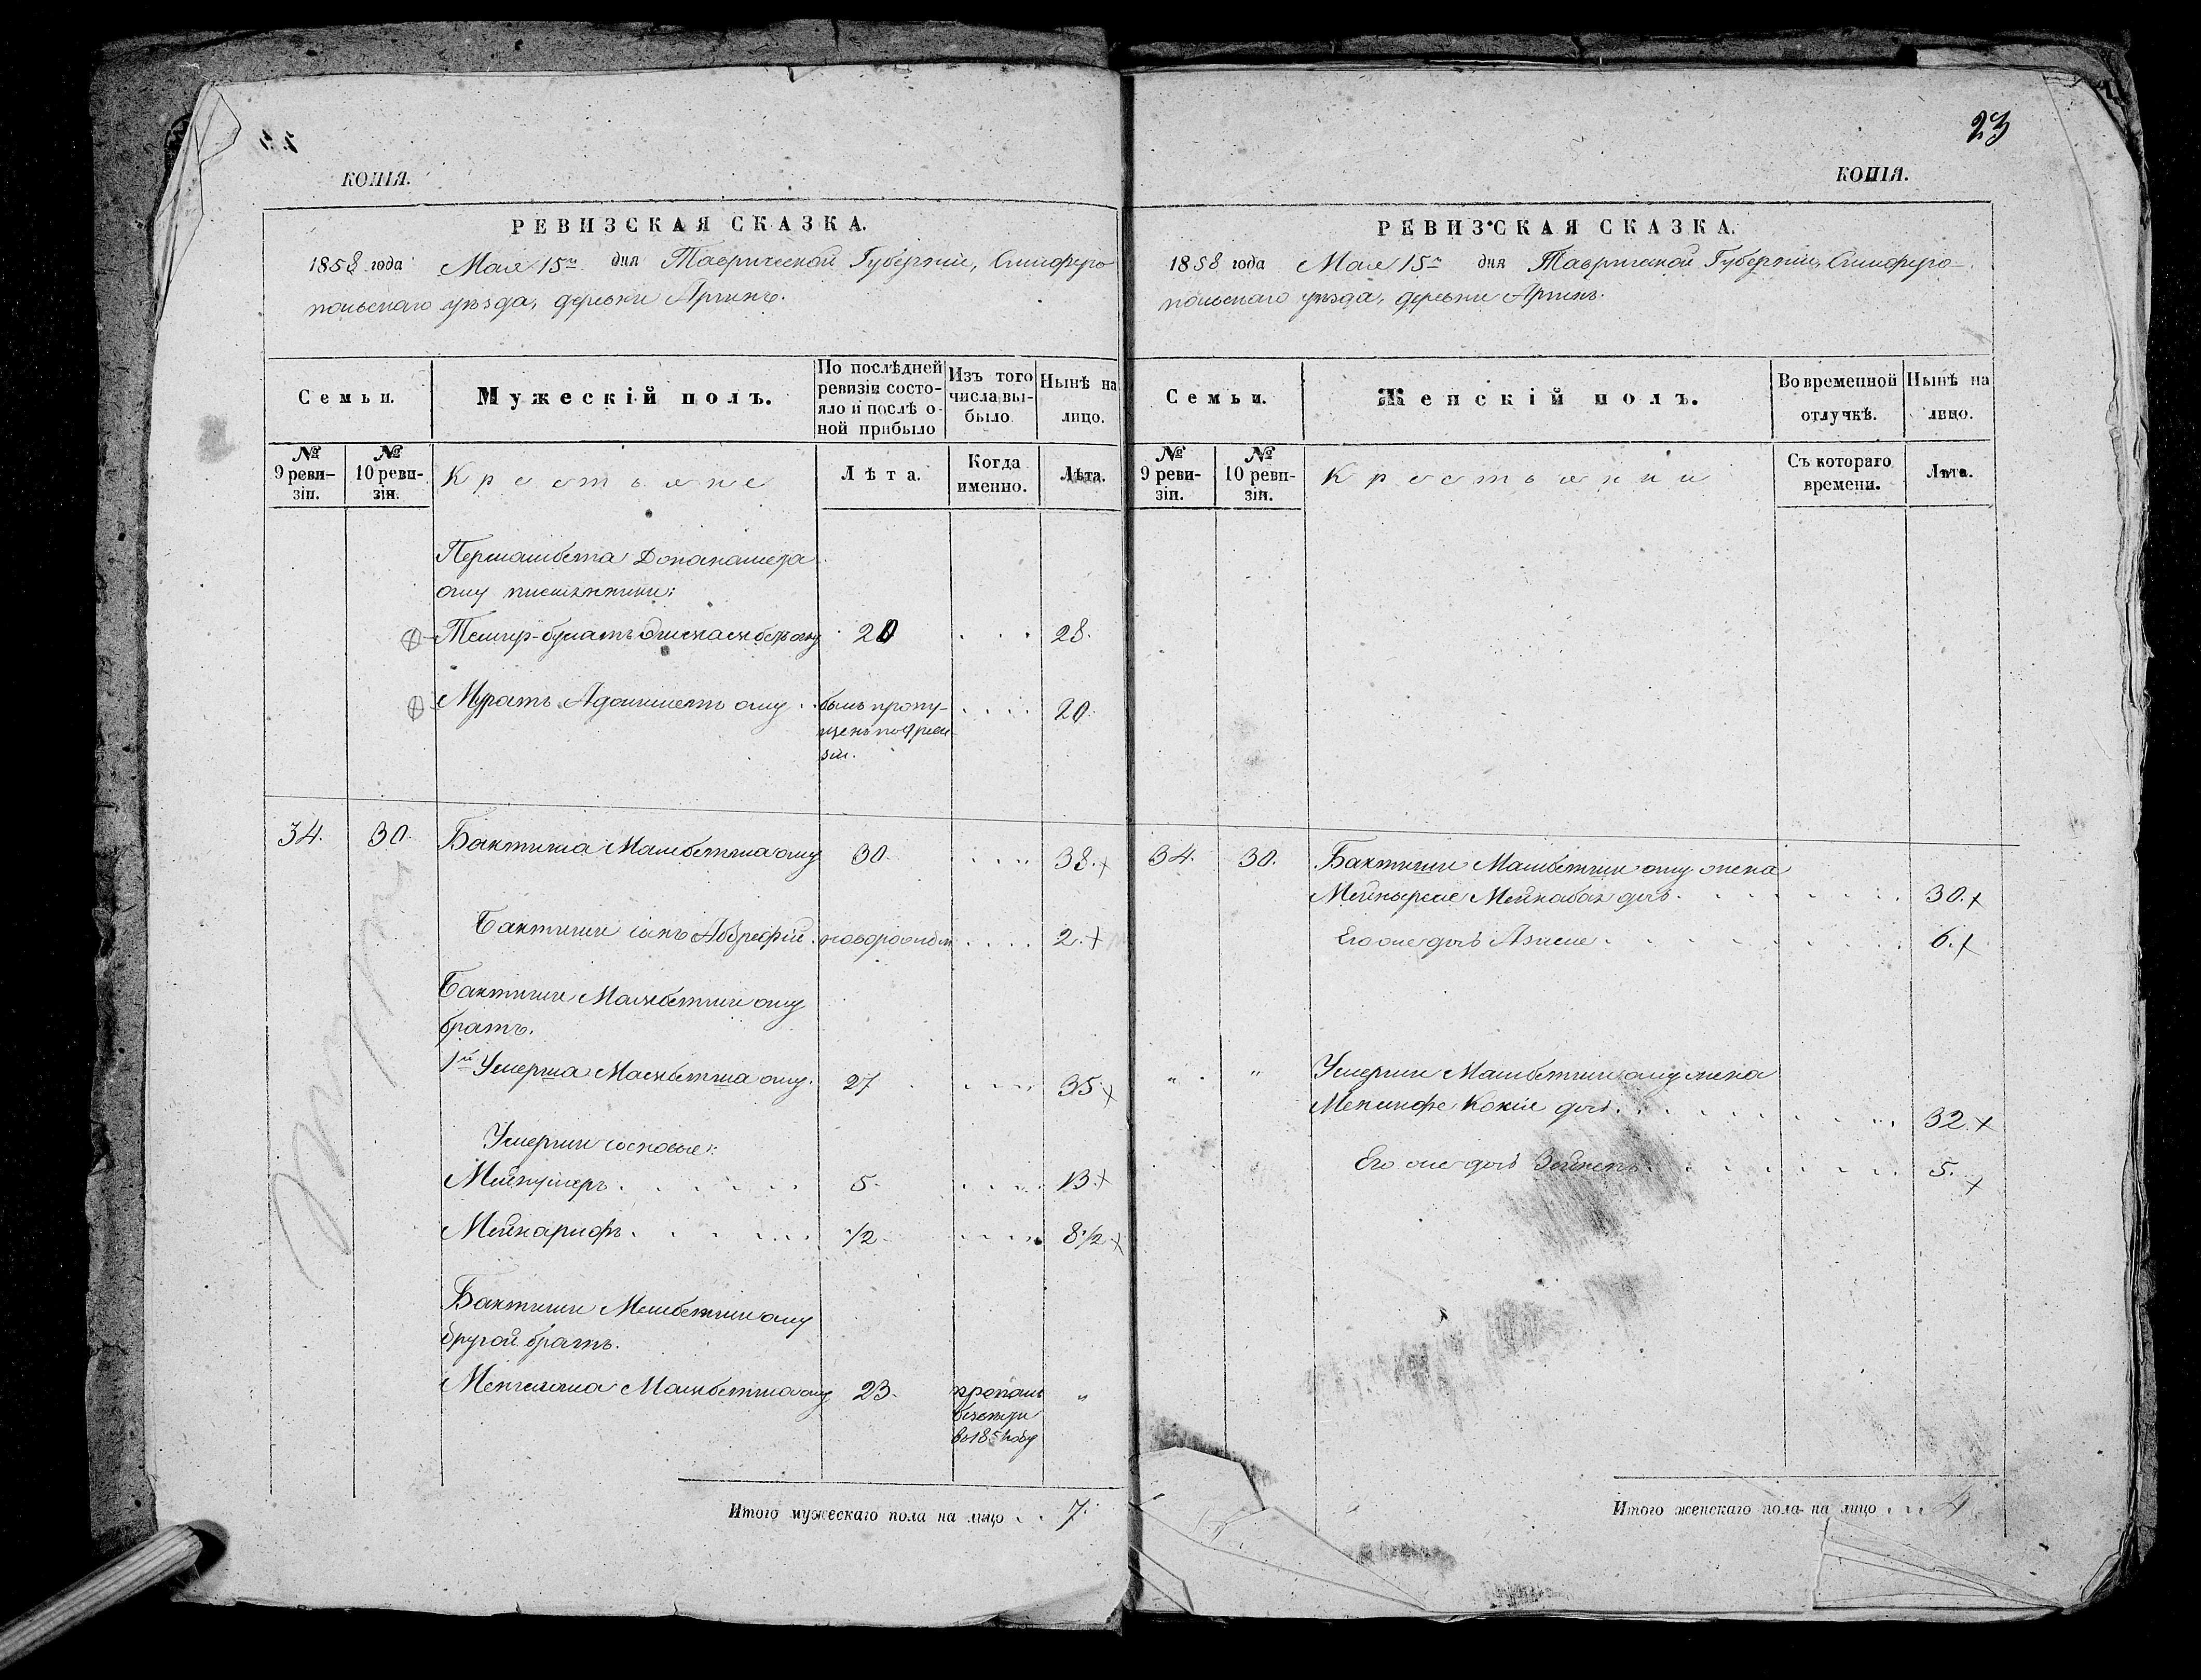 23
КОПІЯ.
РЕВИЗСКАЯ СКАЗКА.
1858 года Мая 15го дня Таврической Губерніи, Симферо-
польскаго уѣзда, деревни Аргинъ.
Семьи.
Мужескій полъ.
По послѣдней
ревизіи состо-
яло и послѣ о-
ной прибыло
Изъ того
числа вы-
было.
Нынѣ на
лицо.
№
9 реви-
зіи.
№
10 реви-
зіи.
Крестьяне
Лѣта.
Когда
именно.
Лѣта.
оглу племянники:
Мамбетъ оглу 28.
Муратъ оглу . . былъ пропу- . . . . 20.
щенъ по 9 реви
зіи.
34. 30. Бактиша Мамбетша оглу 30. . . . . 38. +
Бактиши сынъ новорожден . . . . 2. +
Бактиши Мамбетши оглу
братъ.
1й Умерша Мамбетша оглу. 27 . . . . 35. +
Умерши сыновья:
Мейнумеръ . . . . . . 5. . . . . 13. +
Мейнарифъ . . . . . . 1/2 . . . . 8 1/2 +
Бактиши Мамбетши оглу
другой братъ.
Мамбетша оглу 23. пропалъ "
Итого мужескаго пола на лицо . . 7.
КОПІЯ.
РЕВИЗСКАЯ СКАЗКА.
1858 года Мая 15го дня Таврической Губерніи, Симферо-
польскаго уѣзда, деревни Аргинъ.
Семьи.
Женскій полъ.
Во временной
отлучкѣ.
Нынѣ на
лицо.
№
9 реви-
зіи.
№
10 реви-
зіи.
Крестьянки
Съ котораго
времени.
Лѣта.
34. 30. Бактиши Мамбетши оглу жена
дочь . . . . . . . . 30. +
Его же дочь . . . . . . . . . 6. +
" " Умерши Мамбетши оглу жена
дочь . . . . . . . . 32. +
Его же дочь Зейнепъ . . . . . . . 5. +
Итого женскаго пола на лицо . . . 4